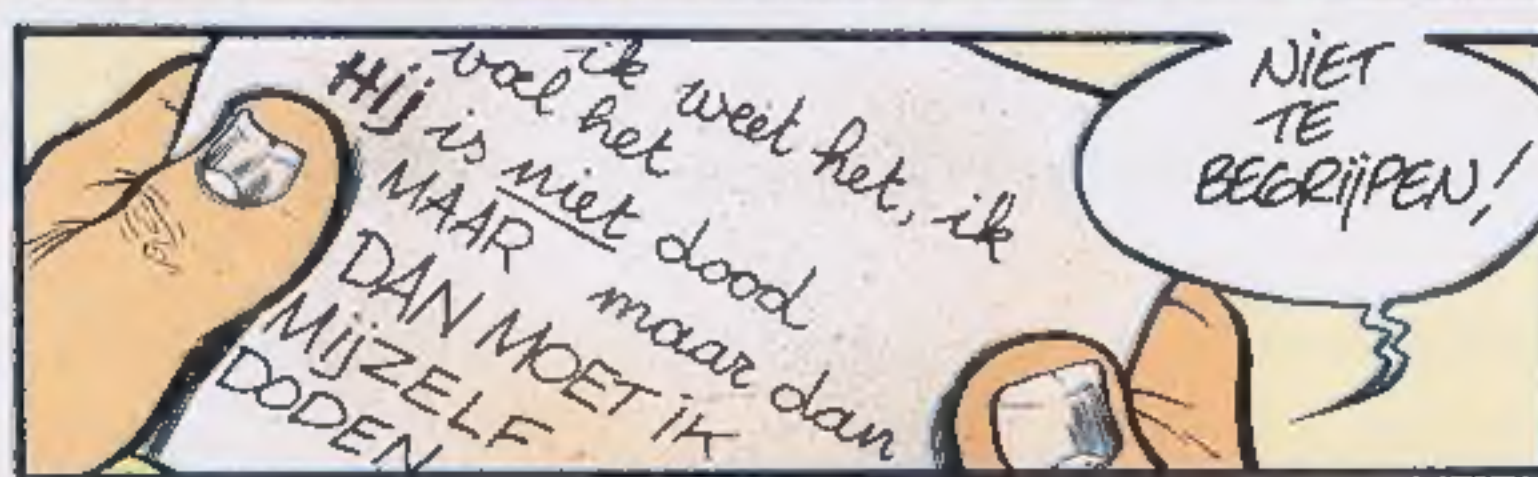 ik weet het, ik
voel het
Hij is niet dood
MAAR maar dan
DAN MOET iK
MijZELF
DODEN
NiET
TE
BEGRijPEN!